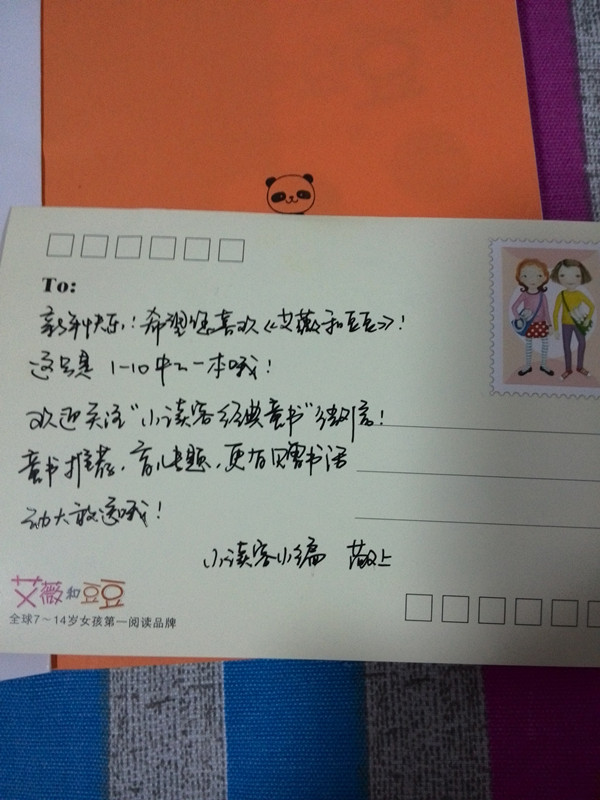 To:
新年快乐!希望您喜欢《艾薇和豆豆》!
这只是 1-10中之一本哦!
欢迎关注"小读客经典童书"微信!
童书推荐,育儿专题,更有见赠书活
动大放送哦!
小读客小编 敬上
艾薇和豆豆
全球7~14岁女孩第一阅读品牌